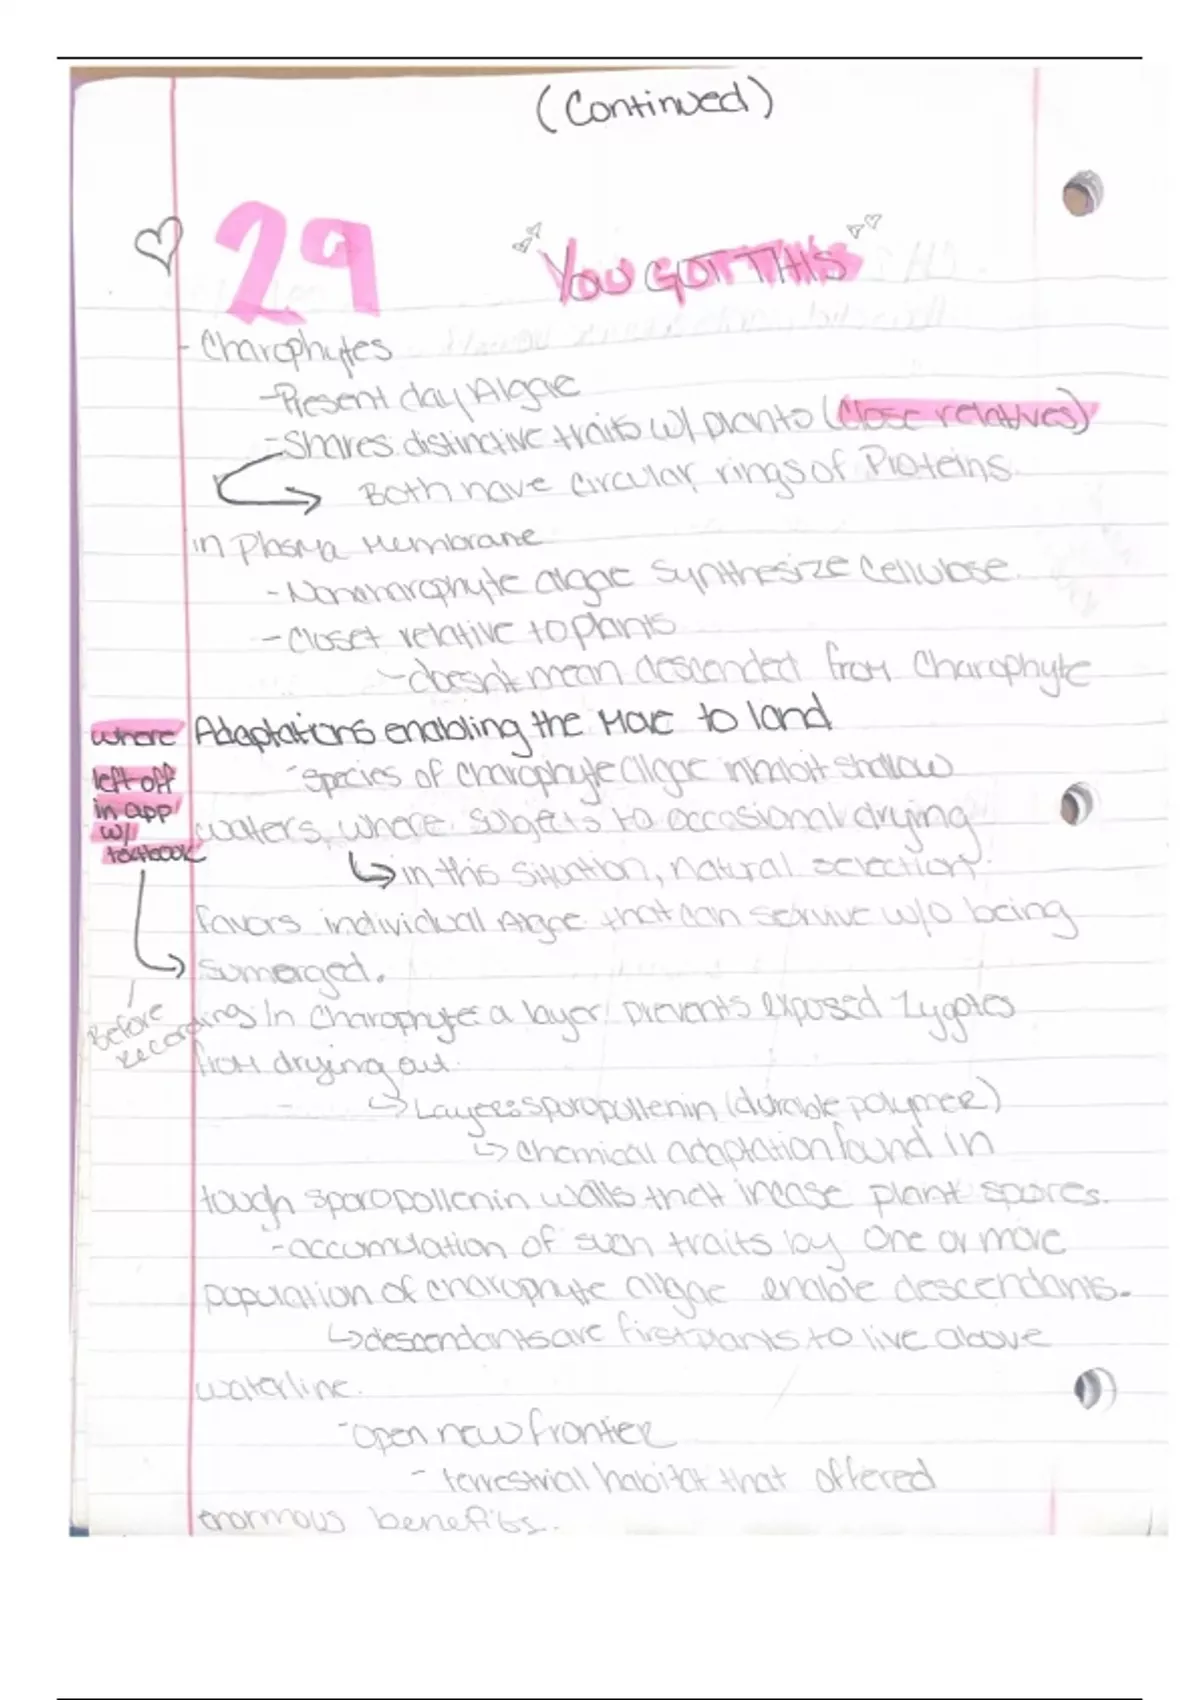 (Continued)
29
YOU GOT THIS
- Charophytes
-Present day Algae
-Shares distinctive traits w/ plants (close relatives)
Both have circular rings of Proteins
in plasma Membrane
- Noncharophyte algae synthesize cellulose.
- Closet relative to plants
-doesn't mean descended from Charophyte
where
left off
in app
w/
textbook
Before
recordings
Adaptations enabling the Move to land
-species of charophyte algae inhabit shallow
waters, where subjects to occasional drying
↳ in this situation, natural selection
favors individual Algae that can survive w/o being
sumerged.
In Charophytes a layer prevents exposed Zygotes
from drying out.
↳ Layer: sporopollenin (durable polymer)
↳ Chemical adaptation found in
tough sporopollenin walls that incase plant spores.
-accumulation of such traits by one or more
population of charophyte algae enable descendants.
↳descendants are first plants to live above
waterline.
-Open new frontier
- terrestrial habitat that offered
enormous benefits.